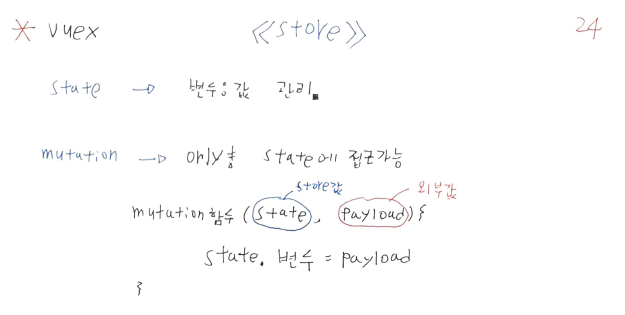 * vuex <<store>> 24
state → 변수: 값 관리.
mutation → only state에 접근가능
store값 외부값
mutation함수 (state, payload) {
state. 변수 = payload
}